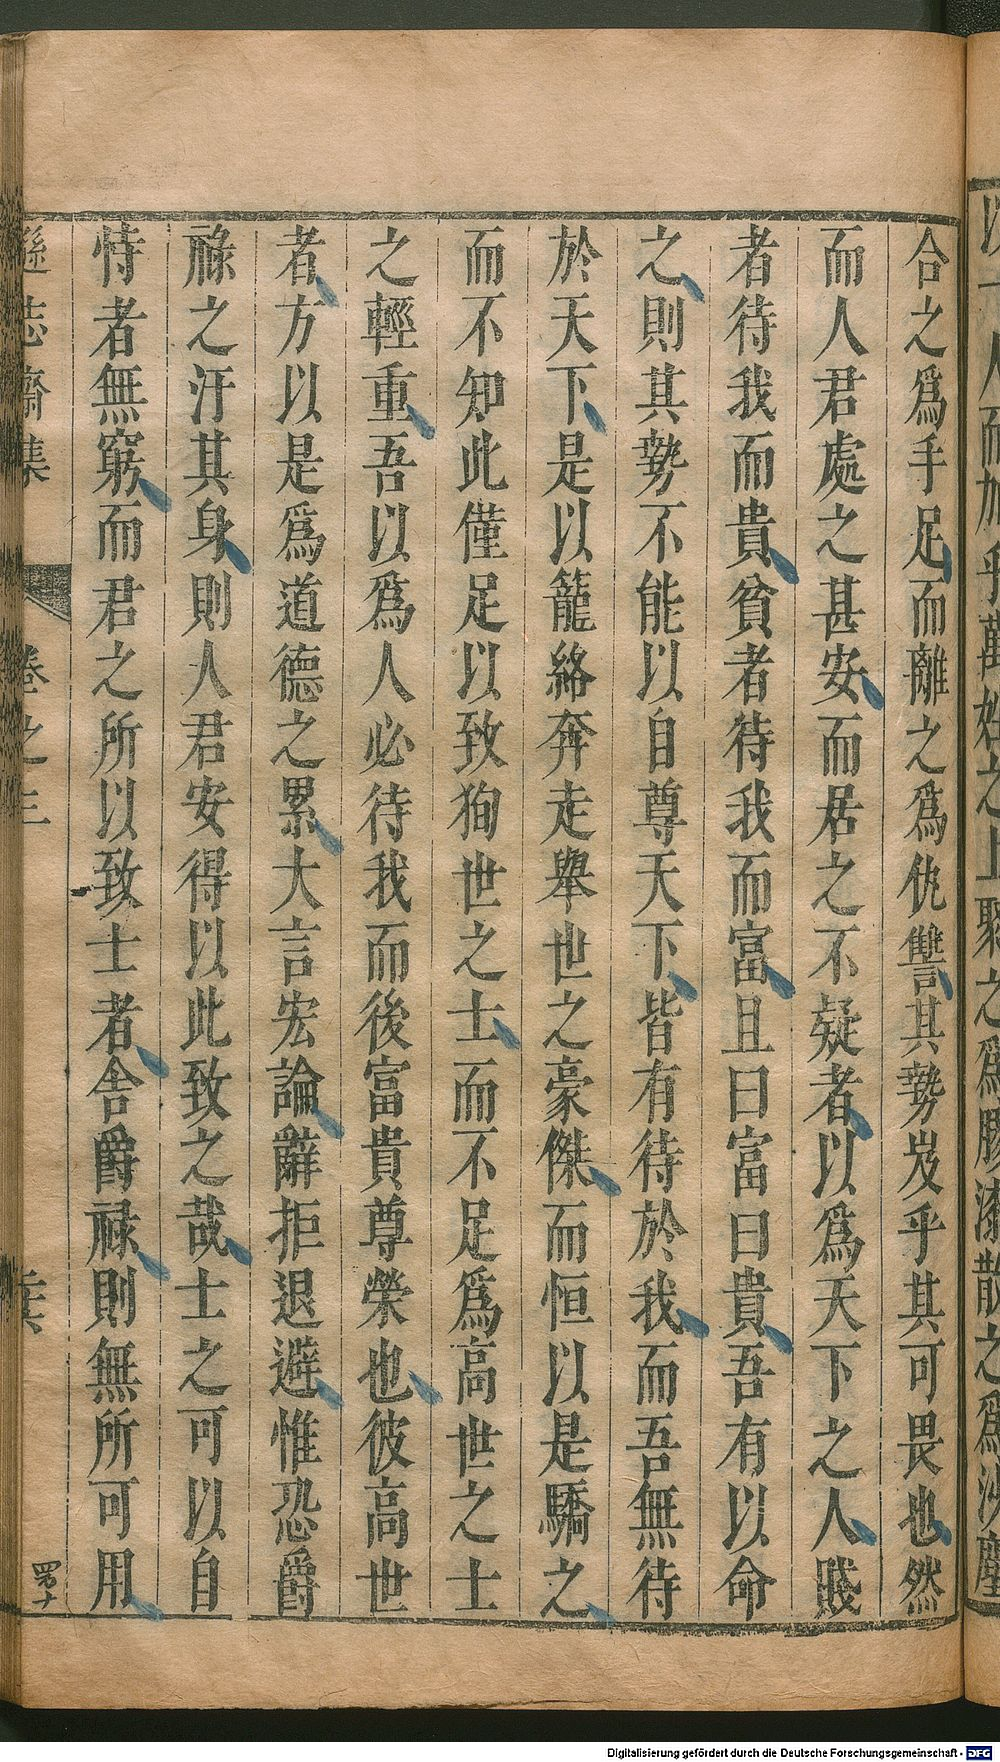 以一人而加乎萬姓之上聚之爲膠漆散之爲沙塵
合之爲手足而離之爲仇讐其勢岌乎其可畏也然
而人君處之甚安而居之不疑者以爲天下之人賤
者待我而貴貧者待我而富且曰富曰貴吾有以命
之則其勢不能以自尊天下皆有待於我而吾無待
於天下是以籠絡奔走舉世之豪傑而恒以是驕之
而不知此僅足以致狥世之士而不足爲高世之士
之輕重吾以爲人必待我而後富貴尊榮也彼高世
者方以是爲道德之累大言宏論辭拒退避惟恐爵
祿之汙其身則人君安得以此致之哉士之可以自
恃者無窮而君之所以致士者舍爵祿則無所可用
遜志齋集 卷之三
Digitalisierung gefördert durch die Deutsche Forschungsgemeinschaft - DFG